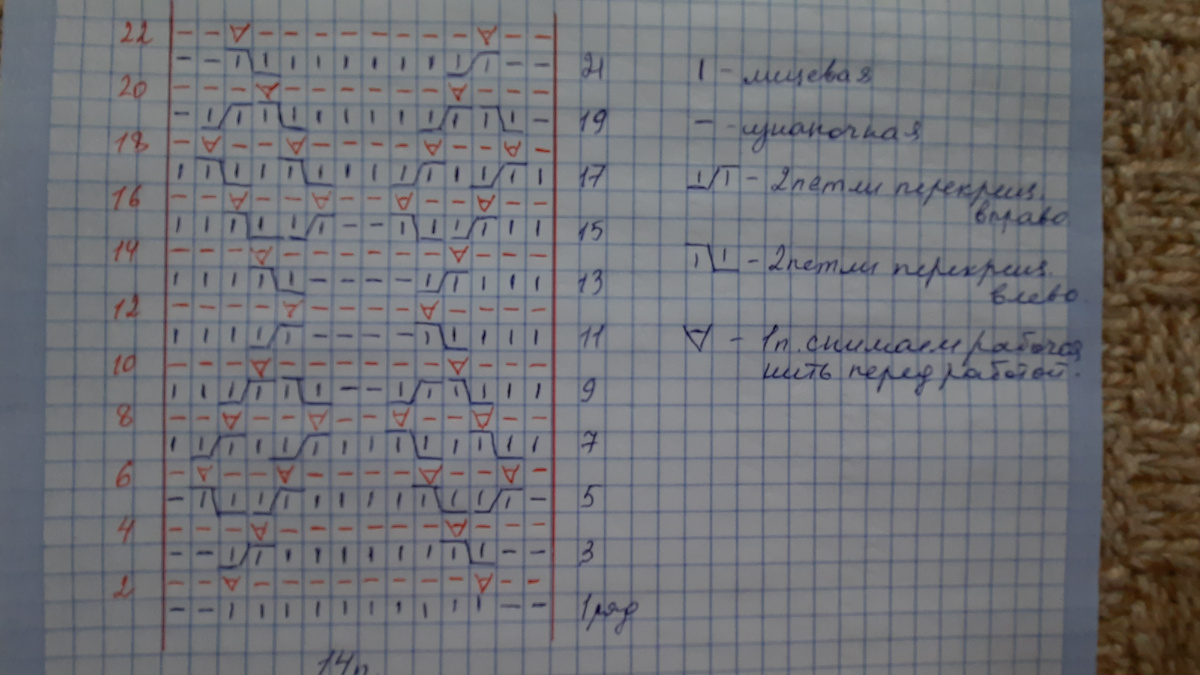 22
21
20
19
18
17
16
15
14
13
12
11
10
9
8
7
6
5
4
3
2
1 ряд
14п
| - лицевая
- - изнаночная
- 2 петли перекрещ.
вправо
- 2 петли перекрещ.
влево.
- 1п. снимаем рабочая
нить перед работой.